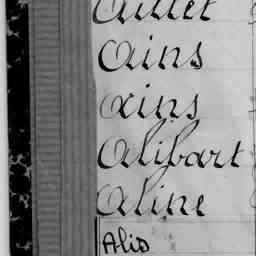 Aillet
Ains
Ains
Alibart
Aline
Alis